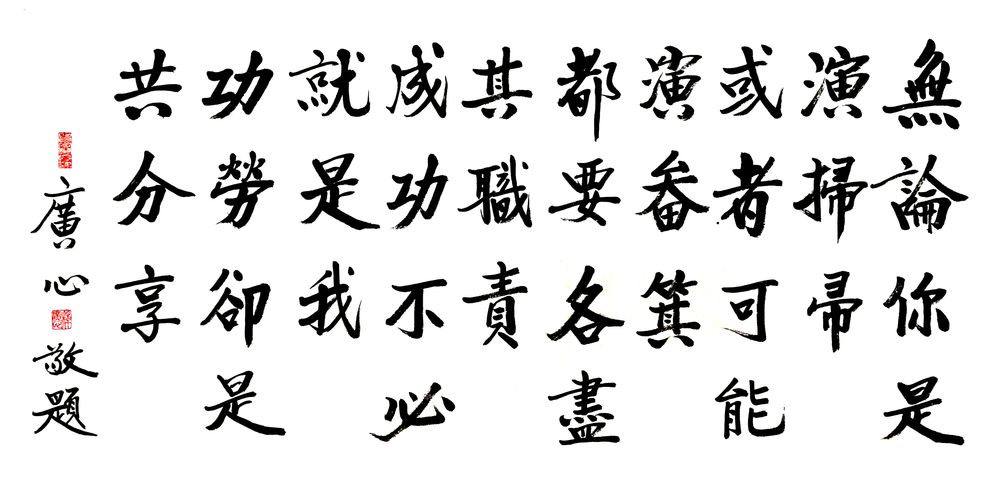 無論你是
演掃帚
或者可能
演畚箕
都要各盡
其職責
成功不必
就是我
功勞卻是
共分享
廣心敬題